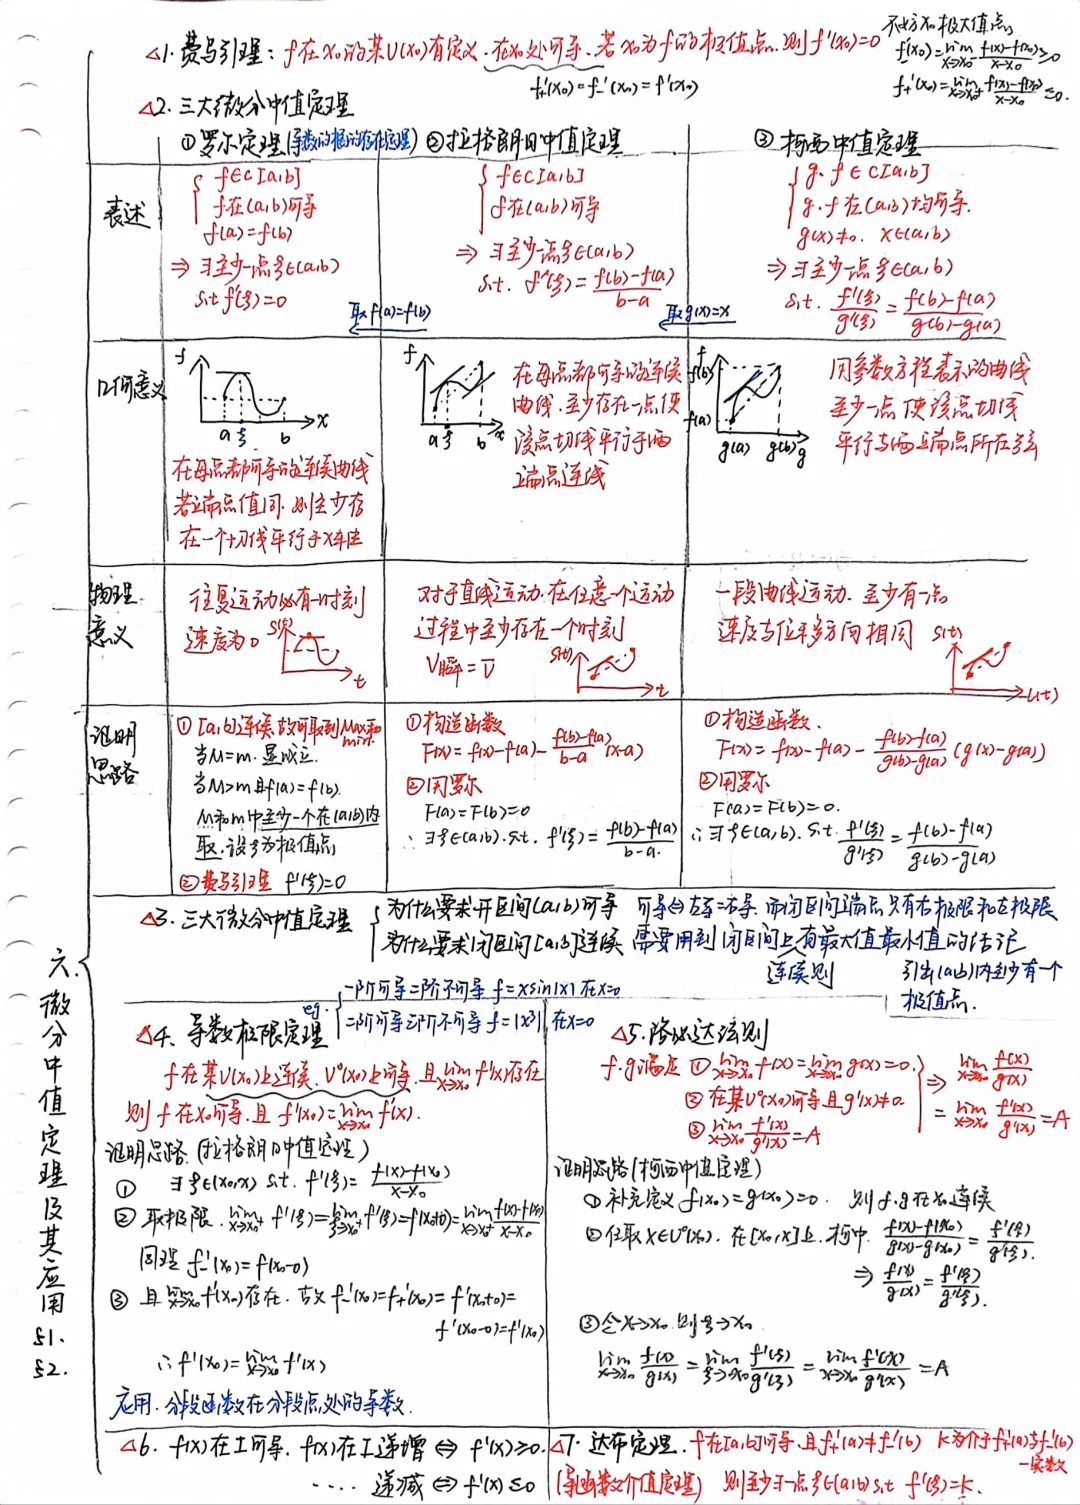 六、微分中值定理及其应用 §1. §2.
△1. 费马引理: f在x₀的某U(x₀)有定义. 在x₀处可导. 若x₀为f的极值点. 则f'(x₀)=0
f₊'(x₀)=f₋'(x₀)=f'(x₀)
不妨x₀极大值点
f₋'(x₀)=lim x→x₀⁻ (f(x)-f(x₀))/(x-x₀)≥0
f₊'(x₀)=lim x→x₀⁺ (f(x)-f(x₀))/(x-x₀)≤0.
△2. 三大微分中值定理
①罗尔定理(导数的根的存在定理) ②拉格朗日中值定理 ③柯西中值定理
表述
f∈C[a,b]
f在(a,b)可导
f(a)=f(b)
⇒ ∃至少一点ξ∈(a,b)
s.t f'(ξ)=0
取f(a)=f(b)
f∈C[a,b]
f在(a,b)可导
⇒ ∃至少一点ξ∈(a,b)
s.t. f'(ξ)=(f(b)-f(a))/(b-a)
取g(x)=x
g. f∈C[a,b]
g. f在(a,b)均可导.
g'(x)≠0. x∈(a,b)
⇒∃至少一点ξ∈(a,b)
s.t. f'(ξ)/g'(ξ)=(f(b)-f(a))/(g(b)-g(a))
几何意义
f
a ξ b x
在每点都可导的连续曲线
若端点值同. 则至少存
在一个切线平行于x轴
f
a ξ b x
在每点都可导的连续
曲线. 至少存在一点使
该点切线平行于两
端点连线
f
f(b)
f(a)
g(a) g(b) g
用参数方程表示的曲线
至少一点使该点切线
平行与两端点所在弦
物理意义
往复运动必有一时刻
速度为0 S(t)
t
对于直线运动. 在任意一个运动
过程中至少存在一个时刻
V瞬=V̄ S(t)
t
一段曲线运动. 至少有一点
速度与位移方向相同 S(t)
L(t)
证明思路
①[a,b]连续. 故可取到Max和min.
当M=m. 显成立.
当M>m且f(a)=f(b).
M和m中至少一个在(a,b)内
取. 设ξ为极值点
②费马引理 f'(ξ)=0
①构造函数
F(x)=f(x)-f(a)-(f(b)-f(a))/(b-a)(x-a)
②用罗尔
F(a)=F(b)=0
∴∃ξ∈(a,b). s.t. f'(ξ)=(f(b)-f(a))/(b-a).
①构造函数.
F(x)=f(x)-f(a)-(f(b)-f(a))/(g(b)-g(a))(g(x)-g(a))
②用罗尔
F(a)=F(b)=0.
∴∃ξ∈(a,b). s.t. f'(ξ)/g'(ξ)=(f(b)-f(a))/(g(b)-g(a))
△3. 三大微分中值定理
为什么要求开区间(a,b)可导 可导⇔左导=右导. 而闭区间端点只有右极限和左极限
为什么要求闭区间[a,b]连续 需要用到闭区间上有最大值最小值的结论
连续则 引出(a,b)内至少有一个
极值点.
eg. 一阶可导二阶不可导 f=xsin|x| 在x=0
二阶可导三阶不可导 f=|x³| 在x=0
△4. 导数极限定理
f在某U(x₀)上连续. U°(x₀)上可导. 且lim x→x₀ f'(x)存在
则f在x₀可导. 且 f'(x₀)=lim x→x₀ f'(x).
证明思路.(拉格朗日中值定理)
① ∃ξ∈(x₀,x) s.t. f'(ξ)=(f(x)-f(x₀))/(x-x₀)
②取极限. lim x→x₀⁺ f'(ξ)=lim ξ→x₀⁺ f'(ξ)=f'(x₀+0)=lim x→x₀⁺ (f(x)-f(x₀))/(x-x₀)
同理 f₋'(x₀)=f'(x₀-0)
③且lim x→x₀ f'(x)存在. 故f₋'(x₀)=f₊'(x₀)=f'(x₀+0)=
f'(x₀-0)=f'(x₀)
∴f'(x₀)=lim x→x₀ f'(x)
应用. 分段函数在分段点处的导数.
△5. 洛必达法则
f. g满足 ①lim x→x₀ f(x)=lim x→x₀ g(x)=0.
②在某U°(x₀)可导且g'(x)≠0.
③lim x→x₀ f'(x)/g'(x)=A
⇒ lim x→x₀ f(x)/g(x)
=lim x→x₀ f'(x)/g'(x)=A
证明思路(柯西中值定理)
①补充定义 f(x₀)=g(x₀)=0. 则f.g在x₀连续
②任取x∈U°(x₀). 在[x₀,x]上. 柯中. (f(x)-f(x₀))/(g(x)-g(x₀))=f'(ξ)/g'(ξ).
⇒ f(x)/g(x)=f'(ξ)/g'(ξ).
③令x→x₀. 则ξ→x₀
lim x→x₀ f(x)/g(x)=lim ξ→x₀ f'(ξ)/g'(ξ)=lim x→x₀ f'(x)/g'(x)=A
△6. f(x)在I可导. f(x)在I递增⇔ f'(x)≥0.
.... 递减⇔f'(x)≤0
△7. 达布定理. f在[a,b]可导. 且f₊'(a)≠f₋'(b) k为介于f₊'(a)与f₋'(b)
一实数
(导函数介值定理) 则至少∃一点ξ∈(a,b) s.t f'(ξ)=k.